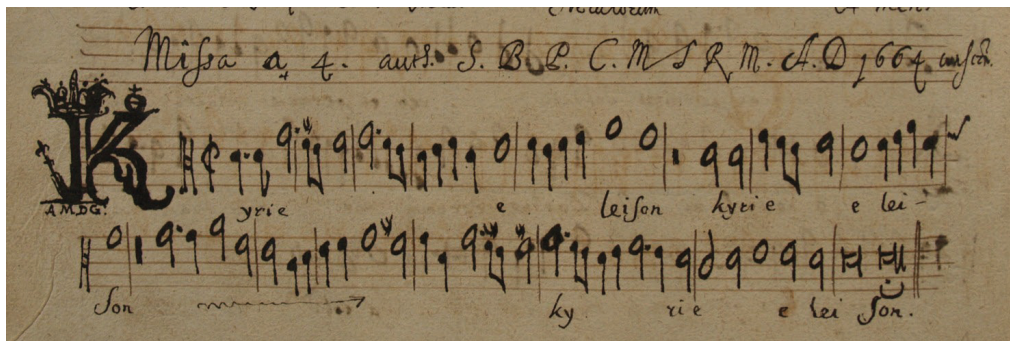 Missa a 4. auth. S. B P. C. M S R M. A. D 1664
K
A M D G:
yrie e leison kyrie e lei-
son ky rie e lei son.